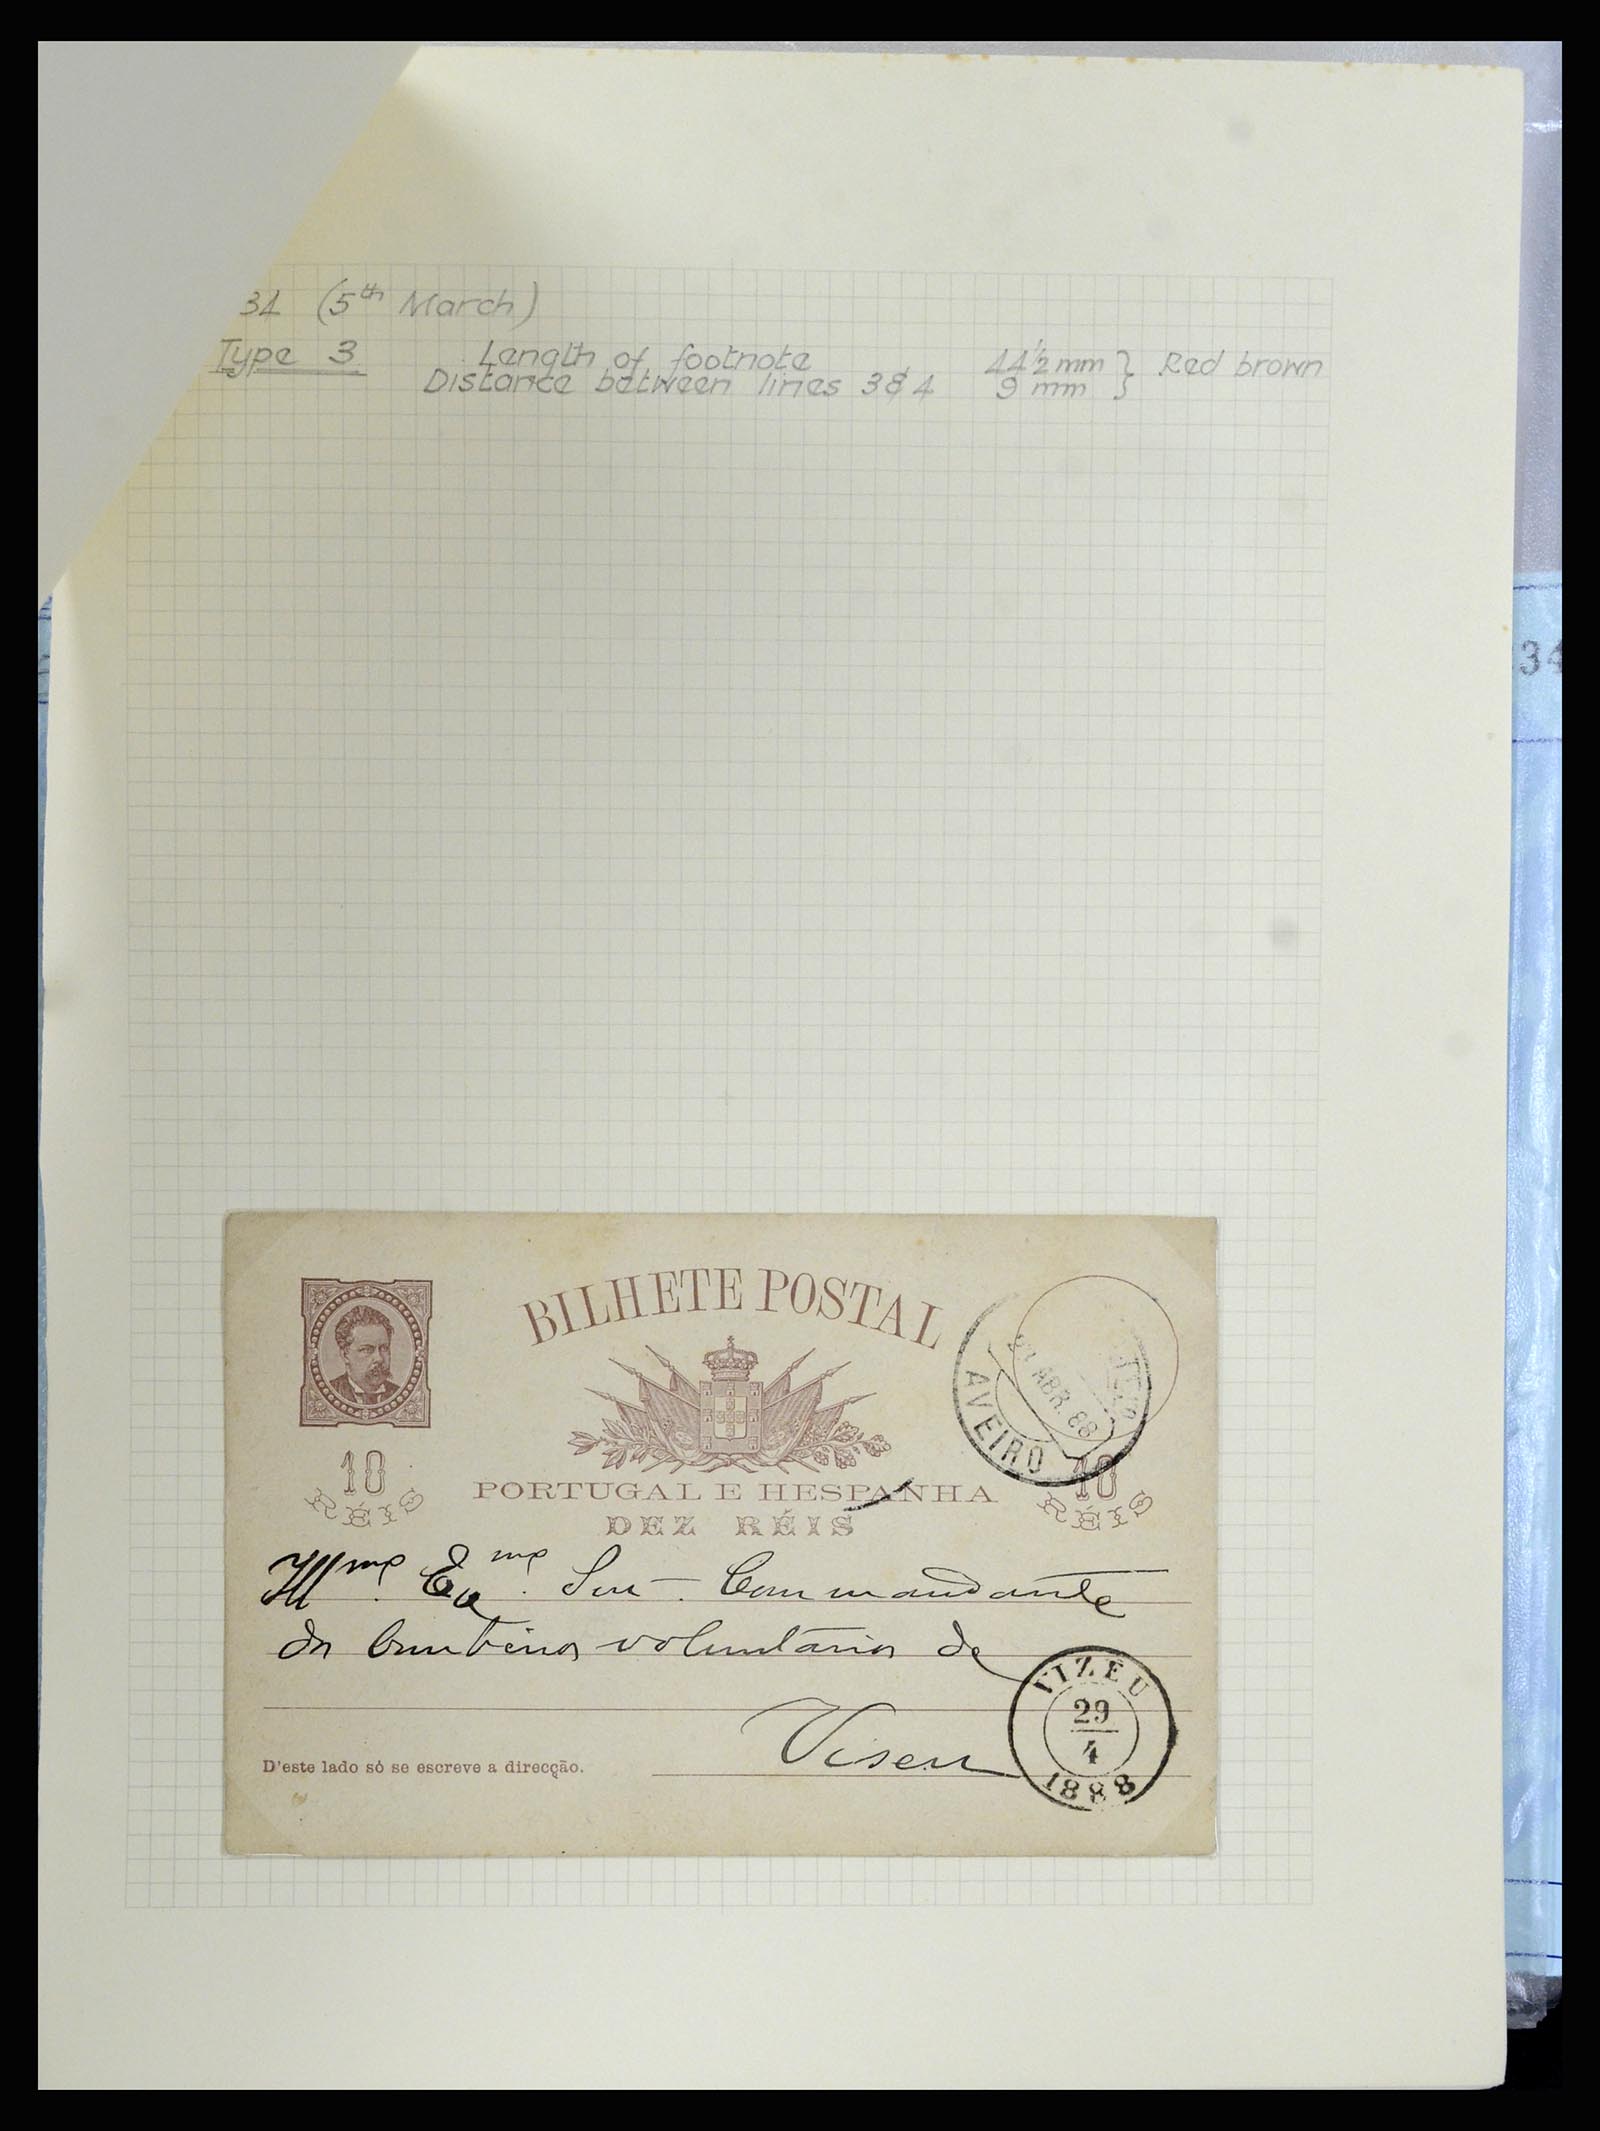 34 (5th March)
Type 3 Length of footnote 44½ mm } Red brown
Distance between lines 3 & 4 9 mm
34
BILHETE POSTAL
ABR. 88
AVEIRO
10 RÉIS
10 RÉIS
PORTUGAL E HESPANHA
DEZ RÉIS
Illmo Exmo Snr. Commandante
do bombeiros voluntarios de
Viseu
VIZEU
29
4
1888
D'este lado só se escreve a direcção.